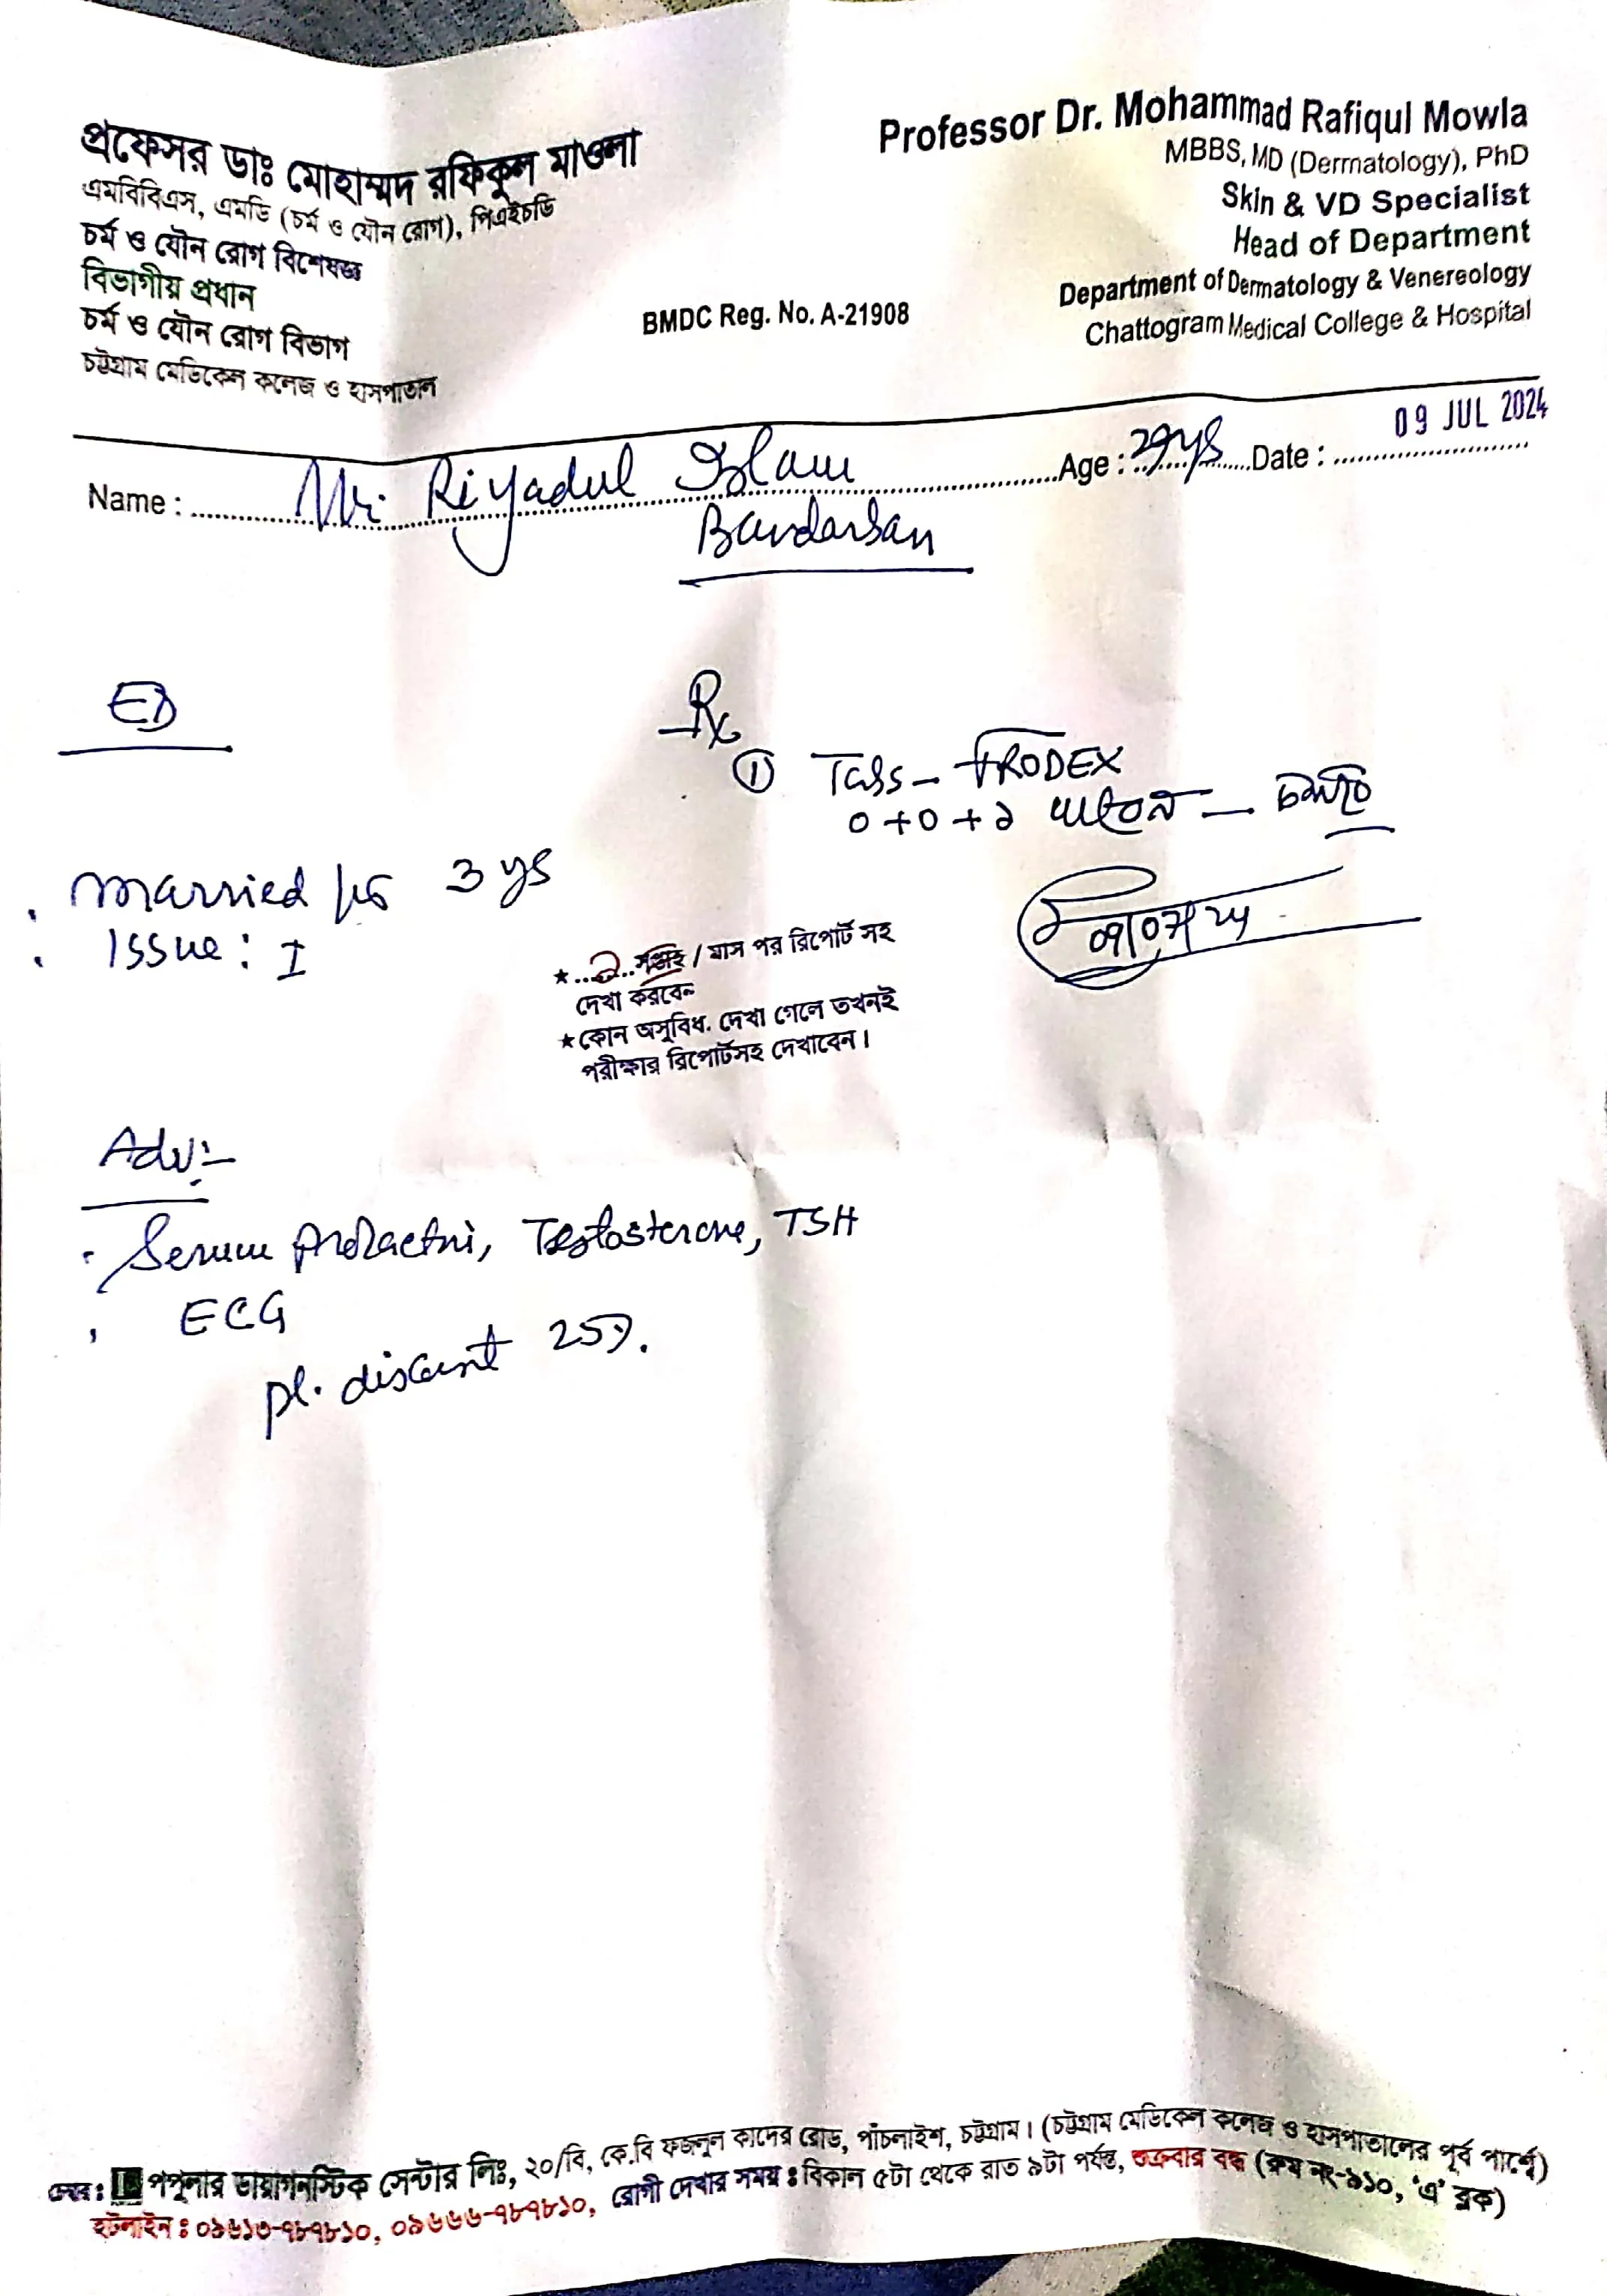 প্রফেসর ডাঃ মোহাম্মদ রফিকুল মাওলা
এমবিবিএস, এমডি (চর্ম ও যৌন রোগ), পিএইচডি
চর্ম ও যৌন রোগ বিশেষজ্ঞ
বিভাগীয় প্রধান
চর্ম ও যৌন রোগ বিভাগ
চট্টগ্রাম মেডিকেল কলেজ ও হাসপাতাল
BMDC Reg. No. A-21908
Professor Dr. Mohammad Rafiqul Mowla
MBBS, MD (Dermatology), PhD
Skin & VD Specialist
Head of Department
Department of Dermatology & Venereology
Chattogram Medical College & Hospital
Name : Mr. Riyadul Islam Age : 29ys Date : 09 JUL 2024
Bandarban
ED
Rx
① Tabs - FRODEX
০+০+১ - চলবে
Married for 3 ys
Issue: I
09/07/24
★ ...২... সপ্তাহ / মাস পর রিপোর্ট সহ
দেখা করবেন
★ কোন অসুবিধ. দেখা গেলে তখনই
পরীক্ষার রিপোর্টসহ দেখাবেন।
Adv:-
Serum Prolactin, Testosterone, TSH
ECG
pl. discount 25%.
চেম্বার : পপুলার ডায়াগনস্টিক সেন্টার লিঃ, ২০/বি, কে.বি ফজলুল কাদের রোড, পাঁচলাইশ, চট্টগ্রাম। (চট্টগ্রাম মেডিকেল কলেজ ও হাসপাতালের পূর্ব পার্শ্বে)
হটলাইন : ০৯৬১৩-৭৮৭৮১০, ০৯৬৬৬-৭৮৭৮১০, রোগী দেখার সময় : বিকাল ৫টা থেকে রাত ৯টা পর্যন্ত, শুক্রবার বন্ধ (রুম নং-৯১০, ‘এ’ ব্লক)